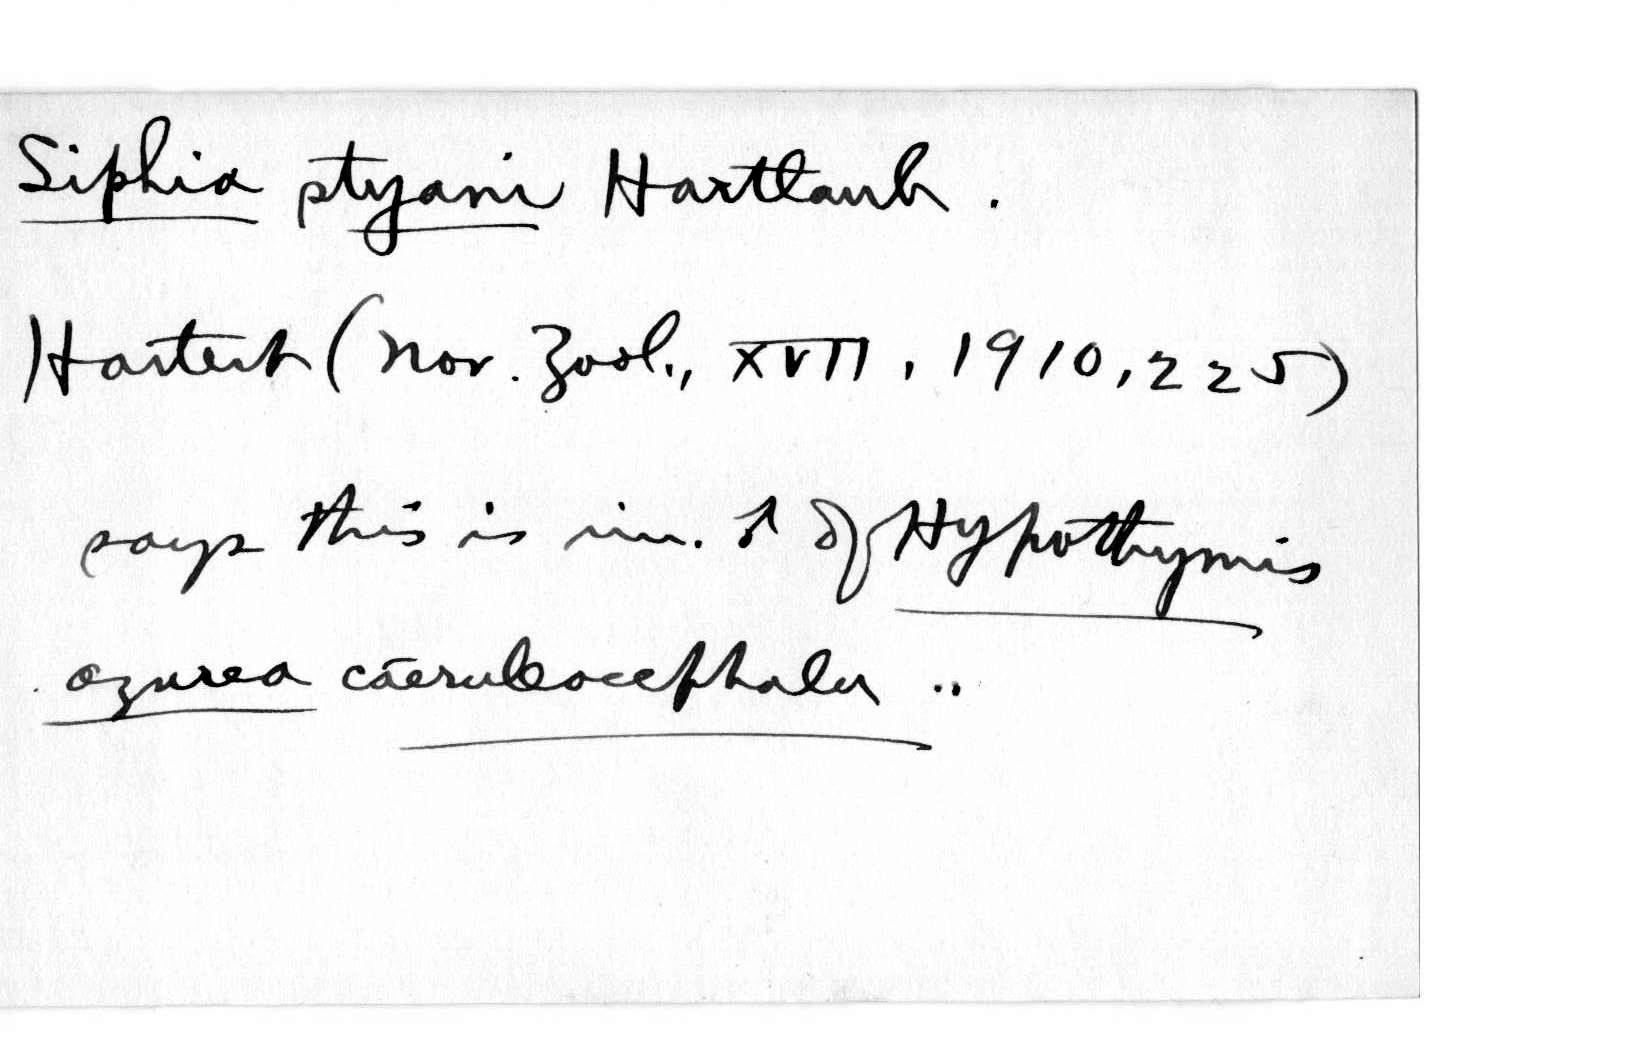 Siphia styani Hartlaub.
Hartert (Nov. Zool., XVII, 1910, 225)
says this is im. ♂ of Hypothymis
azurea caeruleocephala ..